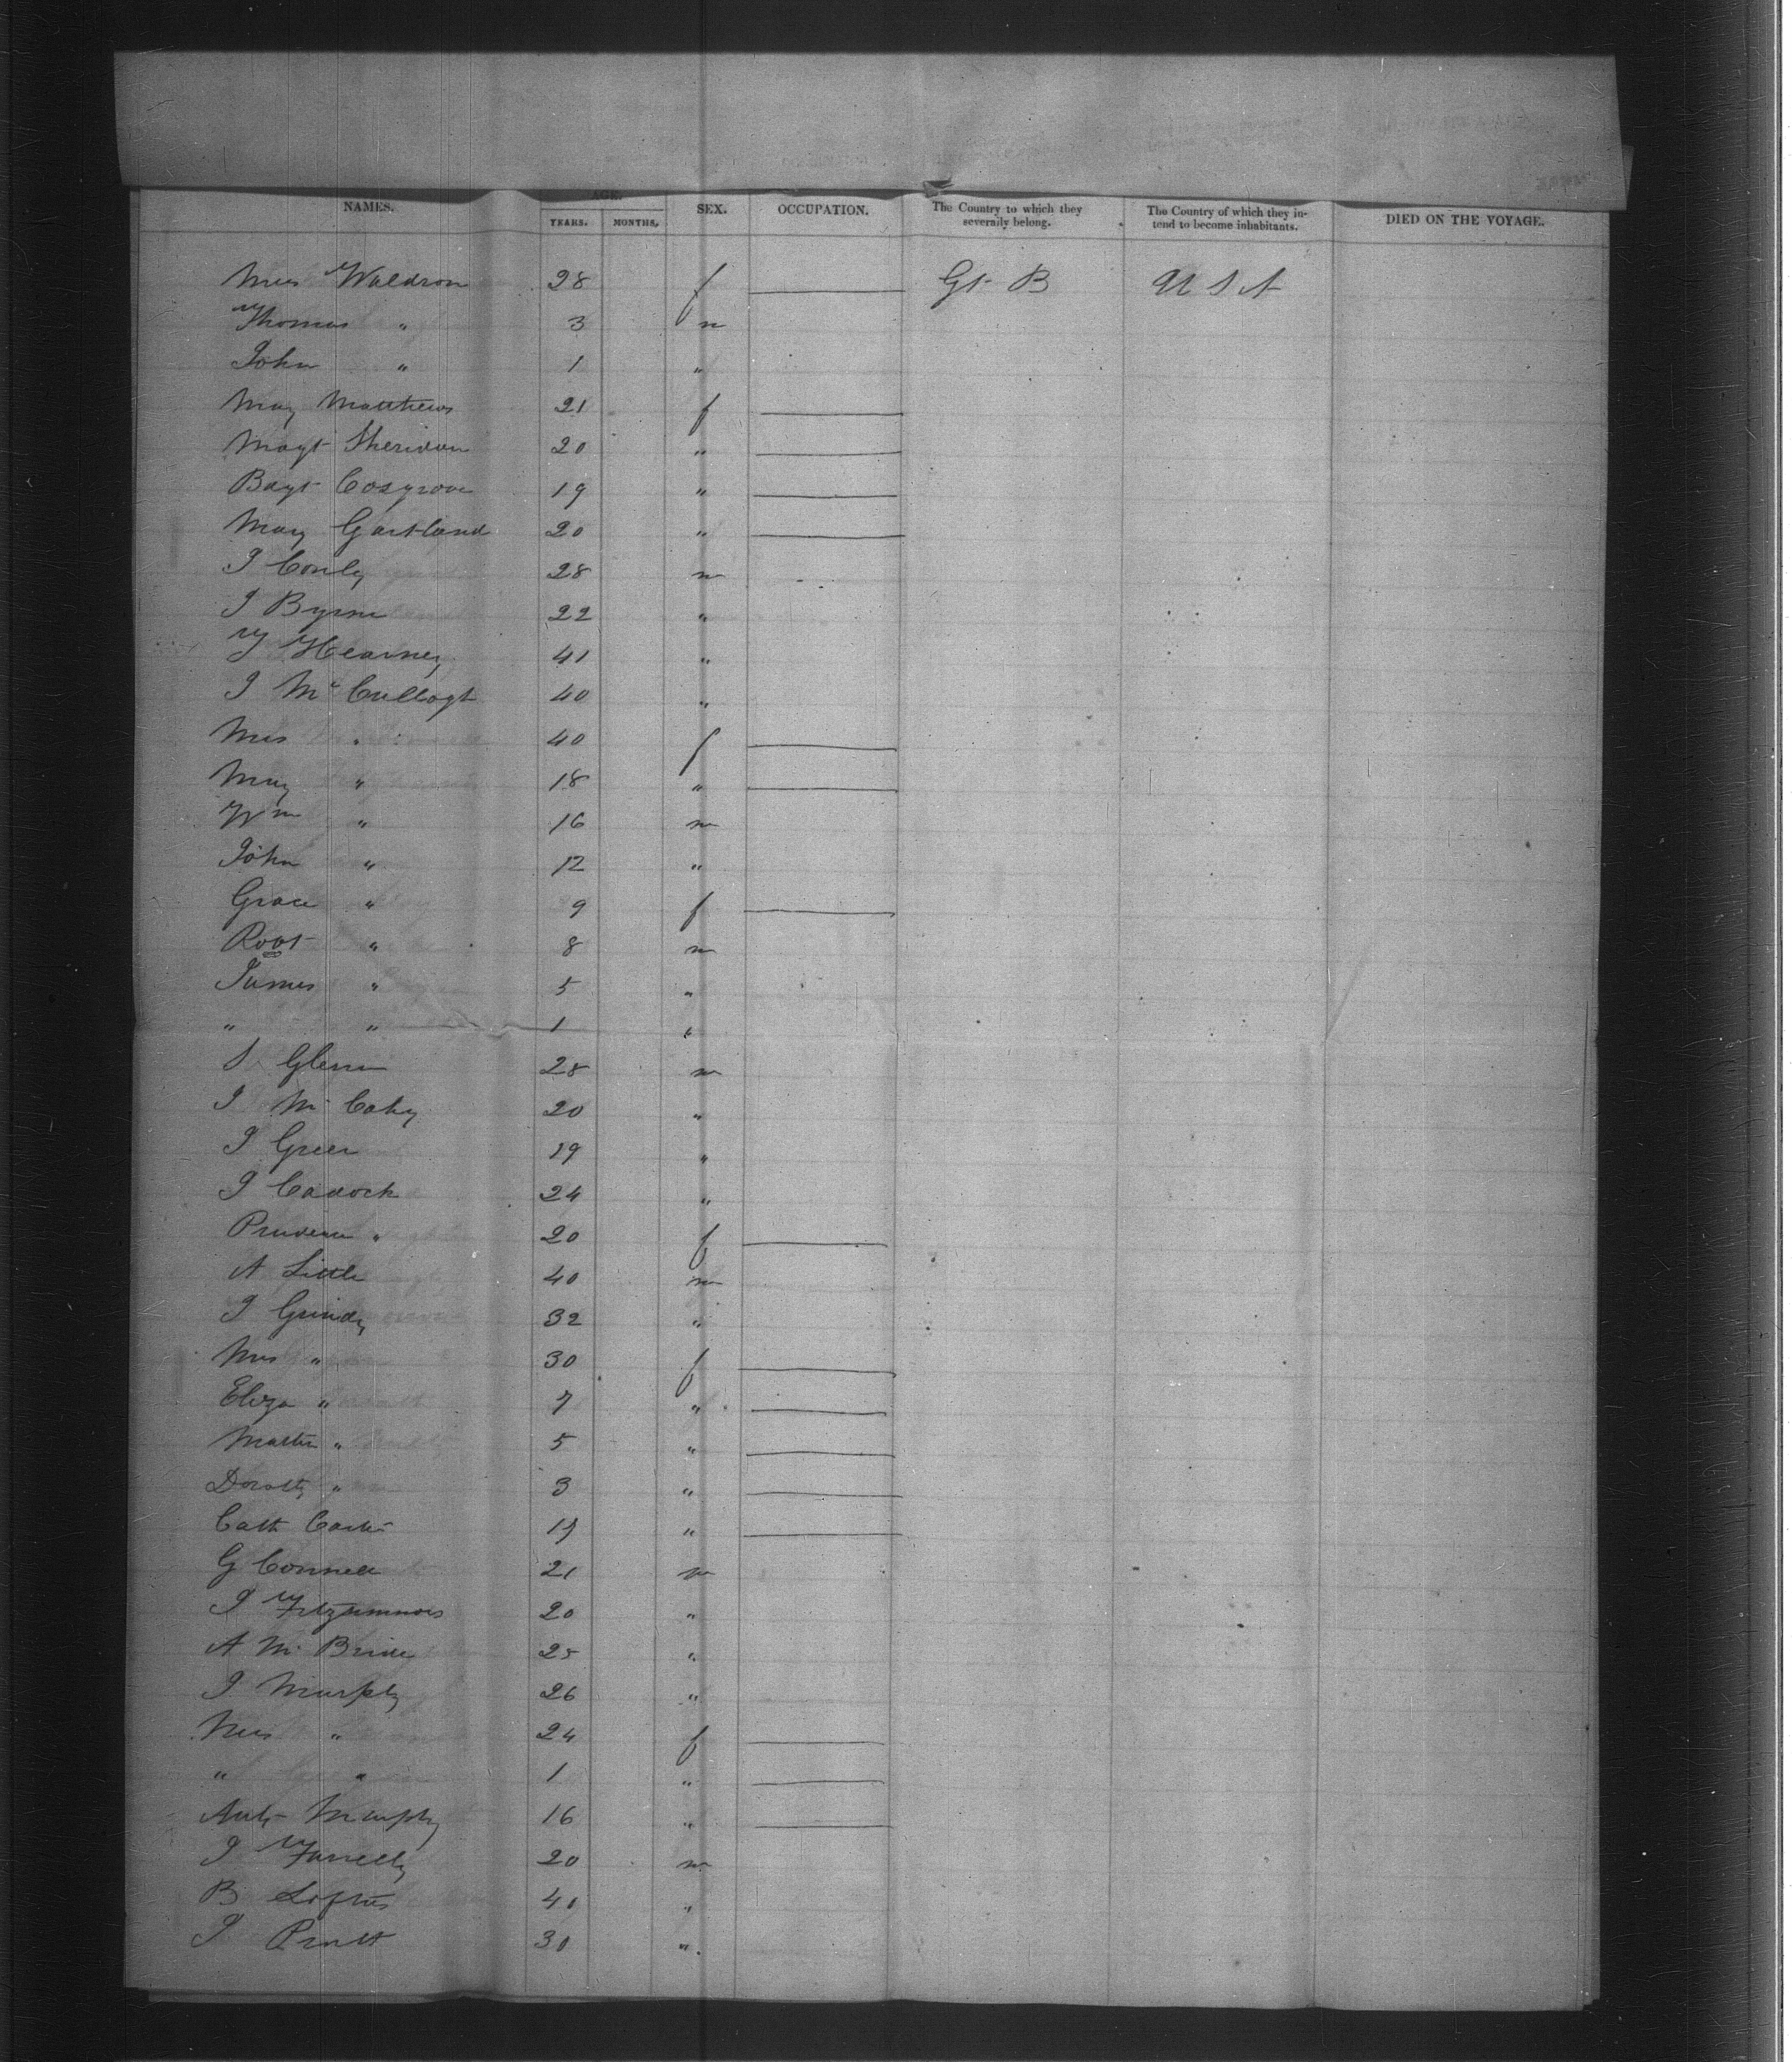 NAMES. AGE. YEARS. MONTHS. SEX. OCCUPATION. The Country to which they severally belong. The Country of which they intend to become inhabitants. DIED ON THE VOYAGE.
Mrs Waldron 28 f Gt B U S A
Thomas " 3 m
John " 1 "
Mary Matthews 21 f
Magt Sheridan 20 "
Bagt Cosgrove 19 "
Mary Gartland 20 "
J Conly 28 m
J Byrne 22 "
F Hearney 41 "
J McCullogh 40 "
Mrs " 40 f
Mary " 18 "
Wm " 16 m
John " 12 "
Grace " 9 f
Robt " 8 m
James " 5 "
" " 1 "
S Glenn 28 m
J McCahy 20 "
J Greer 19 "
J Cadock 24 "
Prudence " 20 f
A Little 40 m
J Grindy 32 "
Mrs " 30 f
Eliza " 7 "
Martha " 5 "
Doratty " 3 "
Cath 19 "
G Connell 21 m
J Fitzsimmons 20 "
A McBride 25 "
J Murphy 26 "
Mrs " 24 f
" " 1 "
Murphy 16 "
J Farrelly 20 m
B Loftus 41 "
J Pratt 30 "